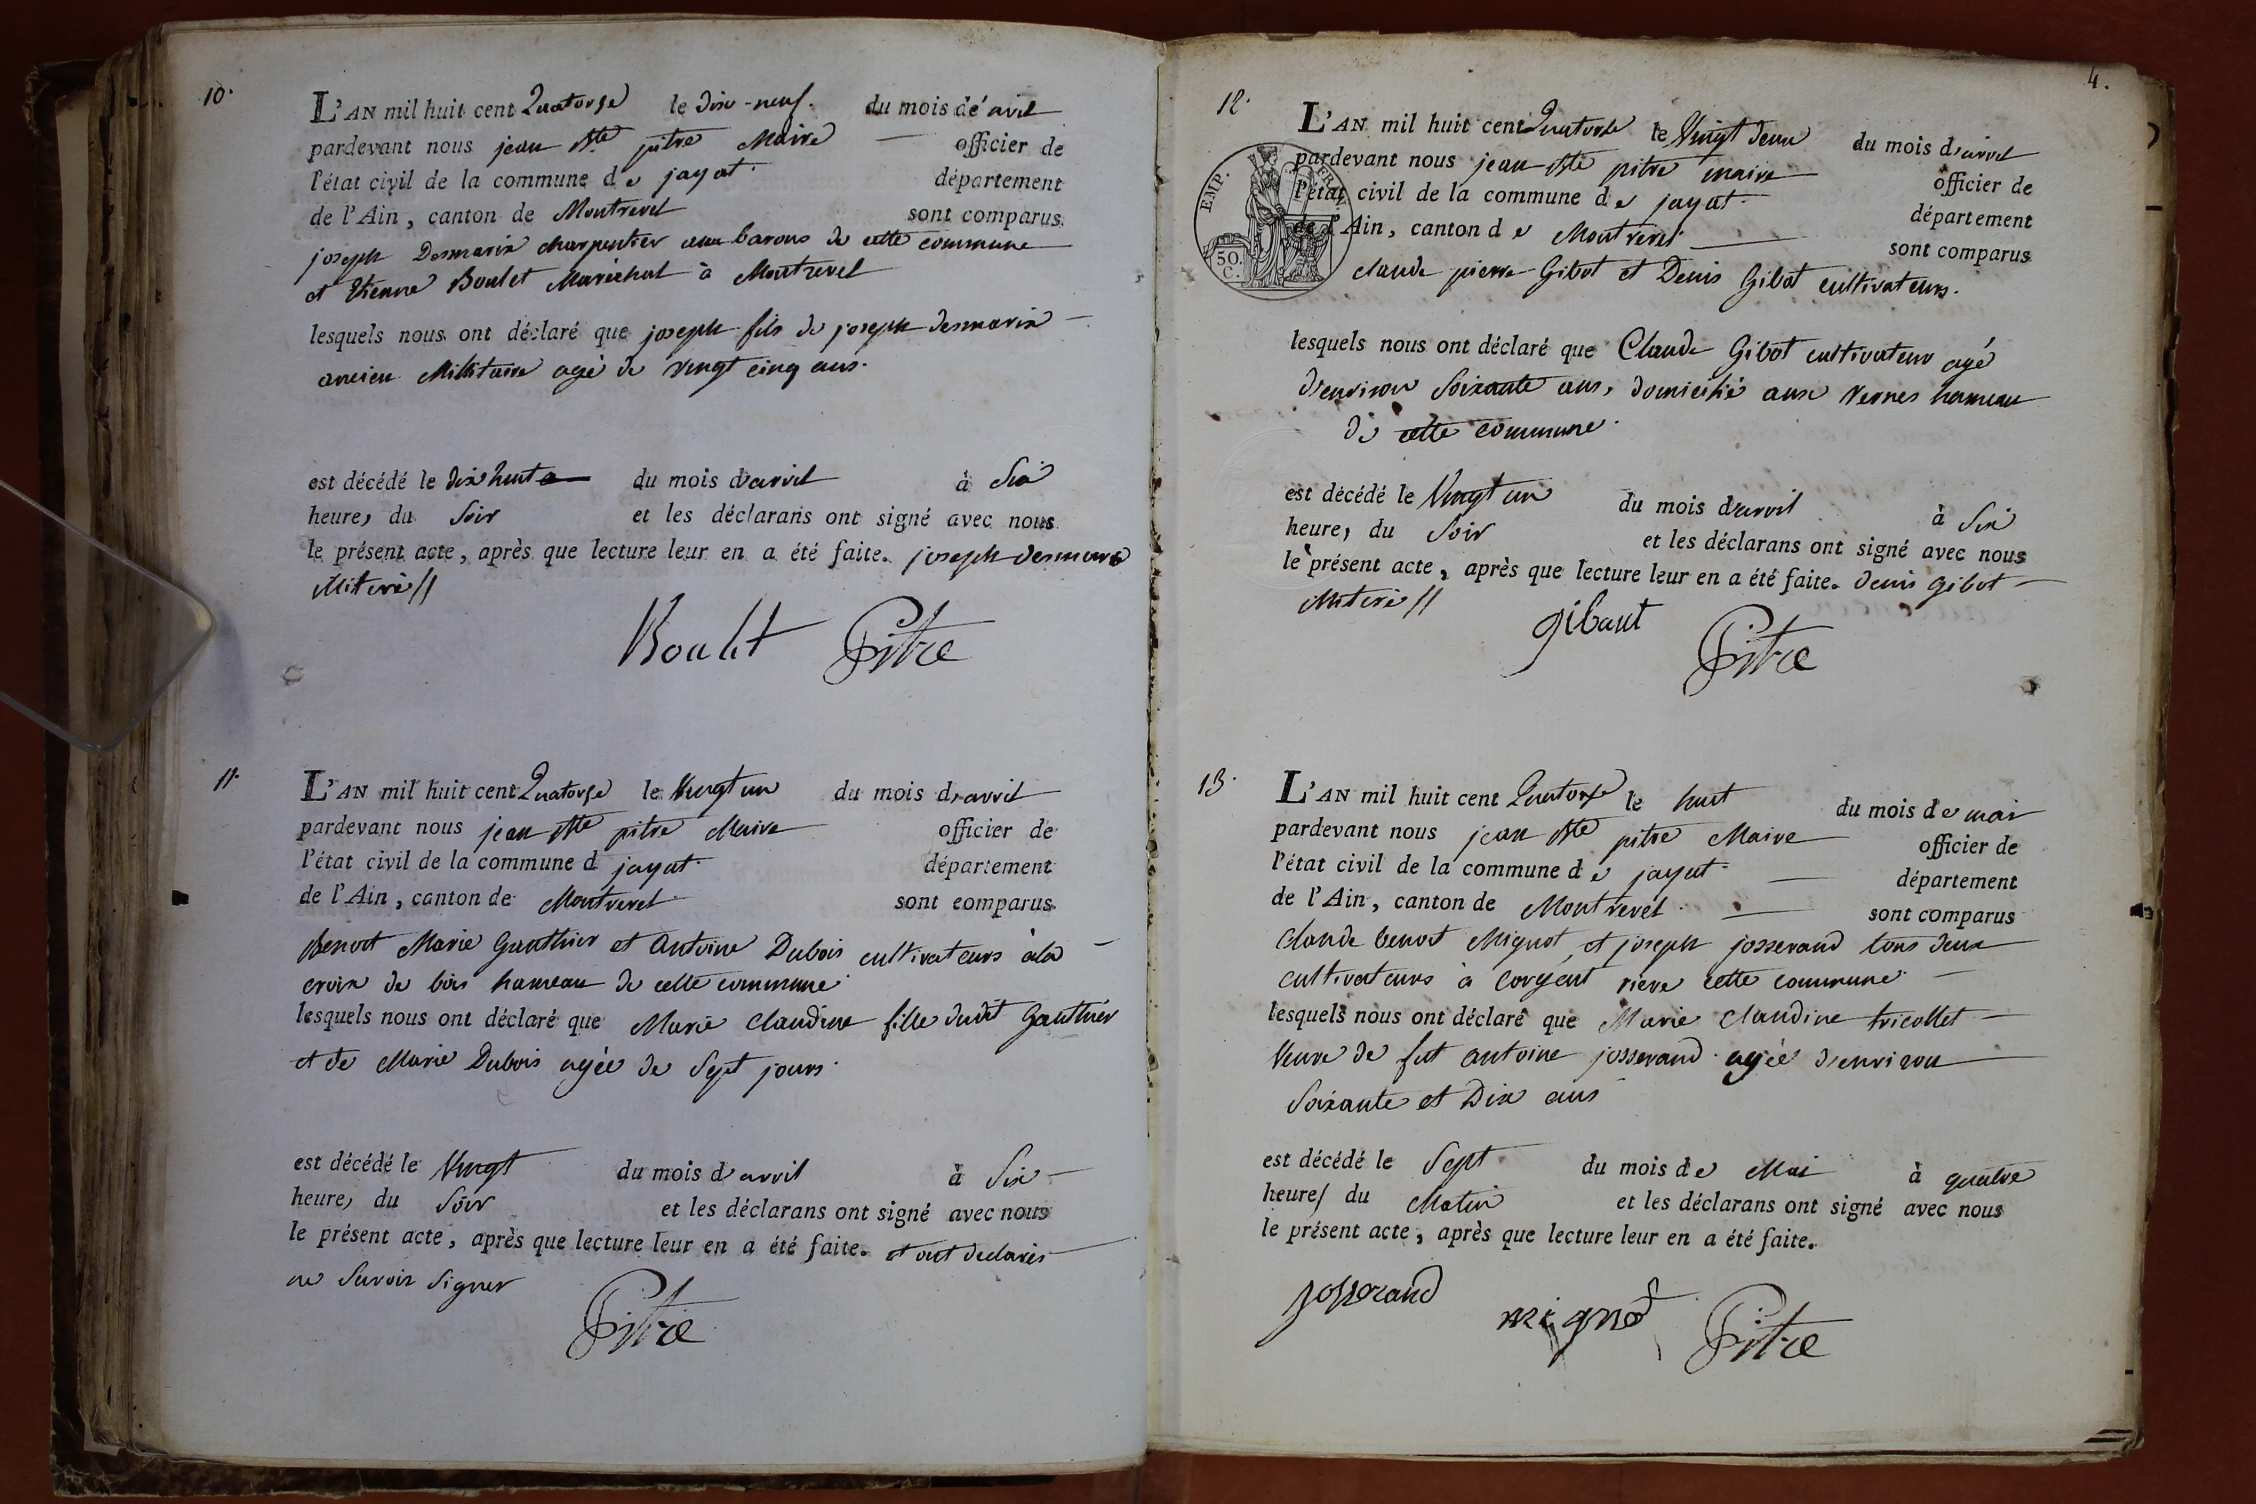 10.
L'AN mil huit cent Quatorze le dix-neuf. du mois de avril
pardevant nous jean Bte pitre Maire officier de
l'état civil de la commune de jayat. département
de l'Ain, canton de Montrevel sont comparus.
joseph Desmaris charpentier aux barons de cette commune
et Etienne Boulet Maréchal à Montrevel
lesquels nous ont déclaré que joseph fils de joseph desmaris
ancien Militaire agé de vingt cinq ans.
est décédé le dix huit du mois d'avril à Six
heures du Soir et les déclarans ont signé avec nous
le présent acte, après que lecture leur en a été faite. joseph desmaris
illiteré //
Boulet Pitre
11.
L'AN mil huit cent Quatorze le Vingt un du mois d'avril
pardevant nous jean Bte pitre Maire officier de
l'état civil de la commune d jayat. département
de l'Ain, canton de Montrevel sont comparus
Benoit Marie Gauthier et Antoine Dubois cultivateurs à la
croix de bois hameau de cette commune
lesquels nous ont déclaré que Marie Claudine fille dudit Gauthier
et de Marie Dubois agée de Sept jours.
est décédé le Vingt du mois d'avril à Six
heures du Soir et les déclarans ont signé avec nous
le présent acte, après que lecture leur en a été faite. et ont declarés
ne Savoir Signer
Pitre
4.
12.
L'AN mil huit cent Quatorze le Vingt deux du mois d'avril
pardevant nous jean Bte pitre maire officier de
l'état civil de la commune de jayat. département
de l'Ain, canton de Montrevel sont comparus
EMP. FRAN.
50. C.
claude pierre Gibot et Denis Gibot cultivateurs.
lesquels nous ont déclaré que Claude Gibot cultivateur agé
d'environ Soixante ans, domicilié aux Vernes hameau
de cette commune.
est décédé le Vingt un du mois d'avril à Six
heures du Soir et les déclarans ont signé avec nous
le présent acte, après que lecture leur en a été faite. denis Gibot
illiteré //
gibaut Pitre
13.
L'AN mil huit cent Quatorze le huit du mois de mai
pardevant nous jean Bte pitre Maire officier de
l'état civil de la commune de jayat. département
de l'Ain, canton de Montrevel. sont comparus
Claude benoit Mignot, et joseph josserand tous deux
cultivateurs à Corgeat riere cette commune
lesquels nous ont déclaré que Marie Claudine tricollet
Veuve de fut antoine josserand agée d'environ
Soixante et Dix ans
est décédé le Sept du mois de Mai à quatre
heures du Matin et les déclarans ont signé avec nous
le présent acte, après que lecture leur en a été faite.
josserand mignot Pitre